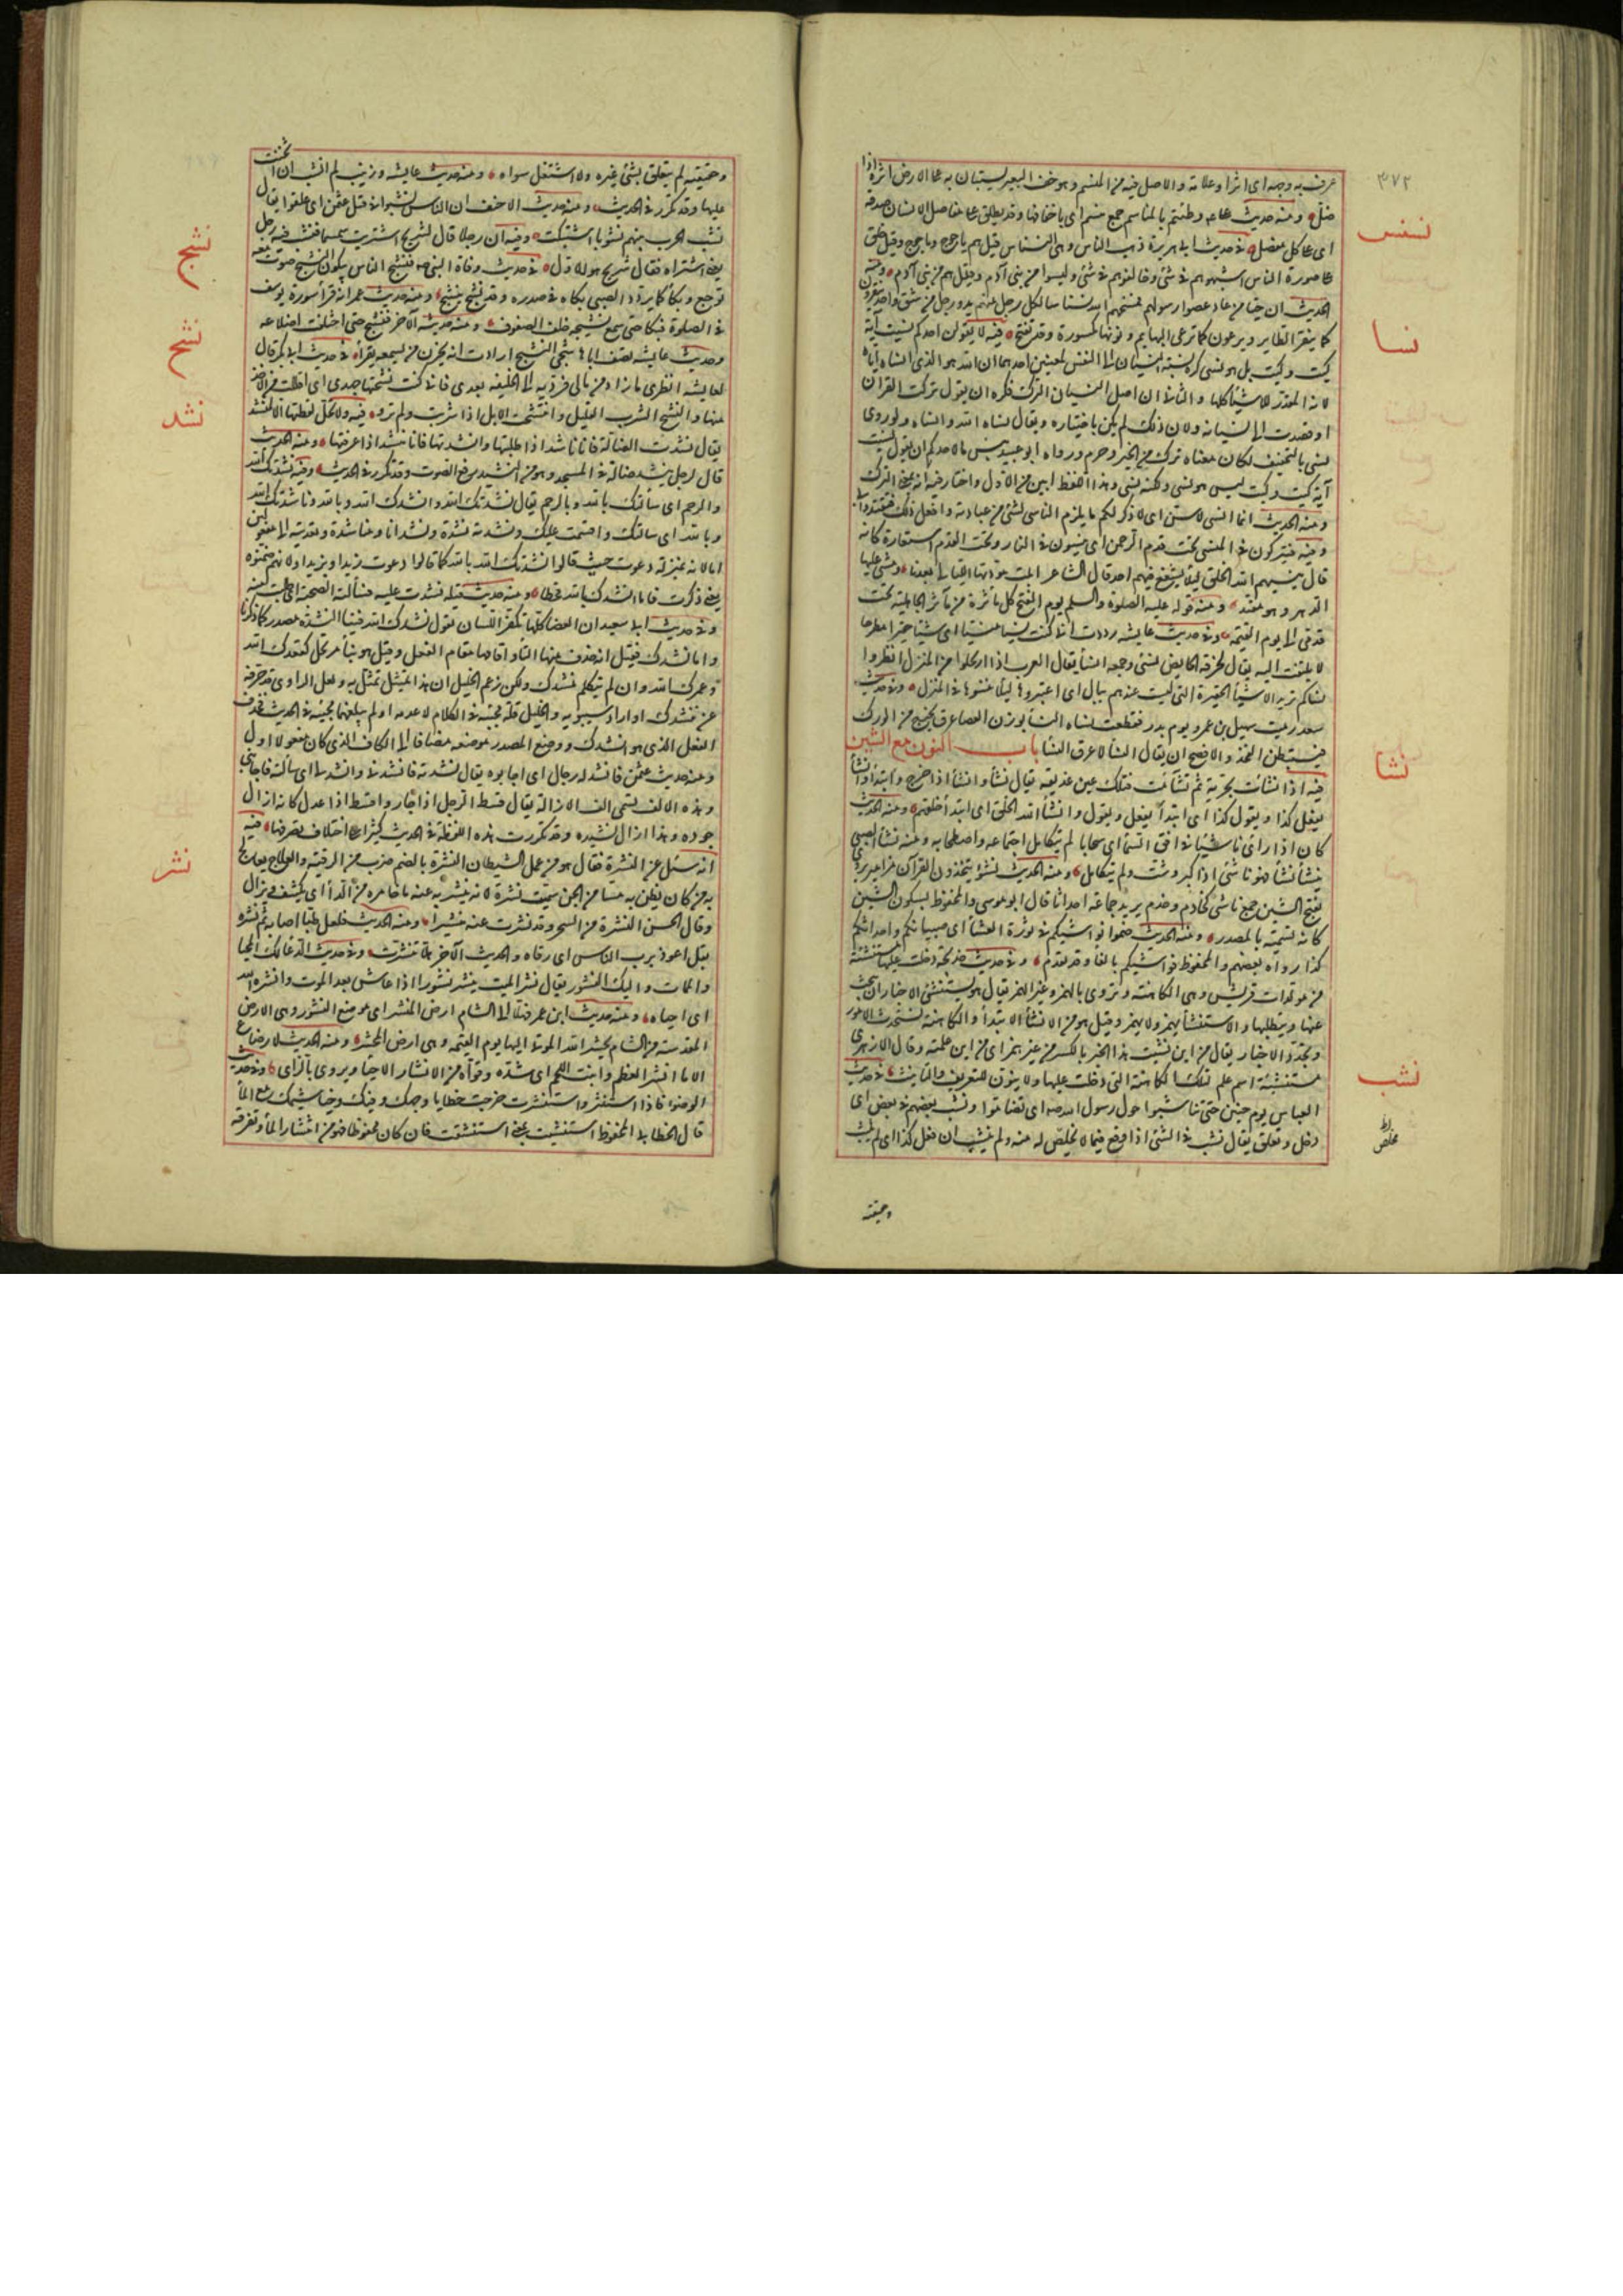 ٣٧٢
عرف به وجهه اى اثرا وعلامة والاصل فيه من المنسم وهو خف البعير يستبان به على الارض اثره اذا
ضل ومنه حديث على وطئتهم بالمناسم جمع منسم اى باخفافها وقد يطلق على مفاصل الانسان
اى على كل مفصل في حديث ابى هريرة ذهب الناس وبقى النسناس قيل هم ياجوج وماجوج وقيل خلق
على صورة الناس اشبهوهم في شئ وخالفوهم في شئ وليسوا من بنى آدم وقيل هم من بنى آدم ومنه
الحديث ان حيا من عاد عصوا رسولهم فمسخهم الله نسناسا لكل رجل منهم يد ورجل من شق واحد ينقزون
كما ينقز الطاير ويرعون كما ترعى البهايم ونونها مكسورة وقد تفتح فيه لا يقولن احدكم نسيت آية
كيت وكيت بل هو نسى كره نسبة النسيان الى النفس لمعنيين احدهما ان الله هو الذى انساه اياه
لانه المقدر للاشيا كلها والثانى ان اصل النسيان الترك فكره ان يقول تركت القران
او قصدت الى نسيانه ولان ذلك لم يكن باختياره ويقال نساه الله وانساه ولو روى
نسى بالتخفيف لكان معناه ترك من الخير وحرم ورواه ابو عبيد بئس ما لاحدكم ان يقول نسيت
آية كيت وكيت ليس هو نسى ولكنه نسى وهذا اللفظ ابين من الاول واختار فيه انه بمعنى الترك
ومنه الحديث انما انسى لاسن اى لاذكر لكم ما يلزم الناسى لشئ من عبادته وافعل ذلك فتقتدوا بى
وفيه فيتركون في المنسى تحت قدم الرحمن اى ينسون في النار وتحت القدم استعارة كانه
قال ينسيهم الله الخلق ليلا يشفع فيهم احد قال الشاعر ابلت مودتها الليالى بعدنا ومشى عليها
الدهر وهو مقيد ومنه قوله عليه الصلوة والسلم يوم الفتح كل ماثرة من مآثر الجاهلية تحت
قدمى الى يوم القيمة وفي حديث عايشه وددت انى كنت نسيا منسيا اى شيئا حقيرا مطرحا
لا يلتفت اليه يقال لخرقة الحايض نسى وجمعه انسا يقال العرب اذا ارتحلوا من المنزل انظروا
انساكم تريد الاشيا الحقيرة التى ليست عندهم ببال اى اعتبروها ليلا تنسوها في المنزل وفي حديث
سعد رميت سهيل بن عمرو يوم بدر فقطعت نساه النسا بوزن العصا عرق يخرج من الورك
فيستبطن الفخذ والافصح ان يقال النسا لا عرق النسا باب النون مع الشين
فيه اذا نشأت بحرية ثم تشاءمت فتلك عين غديقه يقال نشأ وانشأ اذا خرج وابتدأ وانشأ
يفعل كذا ويقول كذا اى ابتدأ يفعل ويقول وانشأ الله الخلق اى ابتدأ خلقهم ومنه الحديث
كان اذا راى ناشيئا في افق السما اى سحابا لم يتكامل اجتماعه واصطحابه ومنه نشأ الصبى
ينشأ نشأ فهو ناشئ اذا كبر وشب ولم يتكامل ومنه الحديث نشؤ يتخذون القرآن مزامير يروى
بفتح الشين جمع ناشئ كخادم وخدم يريد جماعة احداثا قال ابو موسى والمحفوظ بسكون الشين
كانه تسمية بالمصدر ومنه الحديث ضموا نواشيكم في ثورة العشا اى صبيانكم واحداثكم
كذا رواه بعضهم والمحفوظ فواشيكم بالفا وقد تقدم وفي حديث خديجة دخلت عليها مستنشئة
من مولدات قريش وهى الكاهنة وتروى بالهمز وغير الهمز يقال هو يستنشئ الاخبار اى يبحث
عنها ويتطلبها والاستنشأ يهمز ولا يهمز وقيل هو من الانشأ الابتدأ والكاهنة تستحدث الامور
وتجدد الاخبار يقال من اين نشيت هذا الخبر بالكسر من غير همز اى من اين علمته وقال الازهرى
مستنشئة اسم علم لتلك الكاهنة التى دخلت عليها ولا ينون للتعريف والتانيث في حديث
العباس يوم حنين حتى تناشبوا حول رسول الله صه اى تضاموا ونشب بعضهم في بعض اى
دخل وتعلق يقال نشب في الشئ اذا وقع فيما لا مخلص له منه ولم ينشب ان فعل كذا اى لم يلبث
وحقيقته
نسنس
نسا
نشا
نشب
مخلص
وحقيقته لم يتعلق بشئ غيره ولا اشتغل سواه ومنه حديث عايشه وزينب لم انشب ان اثخنت
عليها وقد تكرر في الحديث ومنه حديث الاحنف ان الناس نشبوا في قتل عثمن اى علقوا يقال
نشبت الحرب بينهم نشوبا اشتبكت وفيه ان رجلا قال لشريح اشتريت سمسما فنشب فيه رجل
يعنى اشتراه فقال شريح هو للاول في حديث وفاة النبى صه فنشج الناس يبكون النشيج صوت معه
توجع وبكأ كما يردد الصبى بكاه في صدره وقد نشج ينشج ومنه حديث عمر انه قرأ سورة يوسف
في الصلوة فبكا حتى سمع نشيجه خلف الصفوف ومنه حديثه الآخر فنشج حتى اختلفت اضلاعه
وحديث عايشه تصف اباها شجى النشيج ارادت انه يحزن من يسمعه يقرأ في حديث ابى بكر قال
لعايشه انظرى ما زاد من مالى فرديه الى الخليفة بعدى فانى كنت نشحتها جهدى اى اقللت من الاخذ
منها والنشح الشرب القليل وانتشحت الابل اذا شربت ولم ترو فيه ولا تحل لقطتها الا لمنشد
يقال نشدت الضالة فانا ناشد اذا طلبتها وانشدتها فانا منشد اذا عرفتها ومنه الحديث
قال لرجل ينشد ضالة في المسجد وهو من النشيد رفع الصوت وقد تكرر في الحديث وفيه نشدتك الله
والرحم اى سألتك بالله وبالرحم يقال نشدتك الله وانشدك الله وبالله وناشدتك الله
وبالله اى سالتك واقسمت عليك ونشدته نشدة ونشدانا ومناشدة وتعديته الى مفعولين
اما لانه بمنزلة دعوت حيث قالوا نشدتك الله بالله كما قالوا دعوت زيدا وبزيد او لانهم ضمنوه
معنى ذكرت فاما انشدك بالله فخطا ومنه حديث قيلة فنشدت عليه فسألته الصحبة اى طلبت منه
وفي حديث ابى سعيد ان الاعضا كلها تكفر اللسان تقول نشدك الله فينا النشدة مصدر كما ذكرنا
واما نشدك فقيل انه حذف منها التا واقامها مقام الفعل وقيل هو بناء مرتجل كقعدك الله
وعمرك الله وان لم يتكلم بنشدك ولكن زعم الخليل ان هذا تمثيل تمثل به ولعل الراوى قد حرفه
عن ننشدك او اراد سيبويه والخليل قلة مجيئه في الكلام لا عدمه او لم يبلغهما مجيئه في الحديث فحذف
الفعل الذى هو انشدك ووضع المصدر موضعه مضافا الى الكاف الذى كان مفعولا اول
ومنه حديث عثمن فانشد له رجال اى اجابوه يقال نشدته فانشدنى وانشد لى اى سألته فاجابنى
وهذه الالف تسمى الف الازالة يقال قسط الرجل اذا جار واقسط اذا عدل كانه ازال
جوره وهذا ازال نشيده وقد تكررت هذه اللفظة في الحديث كثيرا على اختلاف تصرفها فيه
انه سئل عن النشرة فقال هو من عمل الشيطان النشرة بالضم ضرب من الرقية والعلاج يعالج
به من كان يظن به مسا من الجن سميت نشرة لانه ينشر به عنه ما خامره من الدأ اى يكشف ويزال
وقال الحسن النشرة من السحر وقد نشرت عنه تنشيرا ومنه الحديث فلعل طبا اصابه ثم نشره
بقل اعوذ برب الناس اى رقاه والحديث الآخر هلا تنشرت وفي حديث الدعا لك المحيا
والممات واليك النشور يقال نشر الميت ينشر نشورا اذا عاش بعد الموت وانشره الله
اى احياه ومنه حديث ابن عمر فهلا الى الشام ارض المنشر اى موضع النشور وهى الارض
المقدسة من الشام يحشر الله الموتى اليها يوم القيمة وهى ارض المحشر ومنه الحديث لا رضاع
الا ما انشر العظم وانبت اللحم اى شده وقواه من الانشار الاحيا ويروى بالزاى وفي حديث
الوضوء فاذا استنثر واستنشرت خرجت خطايا وجهك وفيك وخياشيمك مع المأ
قال الخطابى المحفوظ استنشيت بمعنى استنشقت فان كان محفوظا فهو من انتشار المأ وتفرقه
نشج
نشح
نشد
نشر